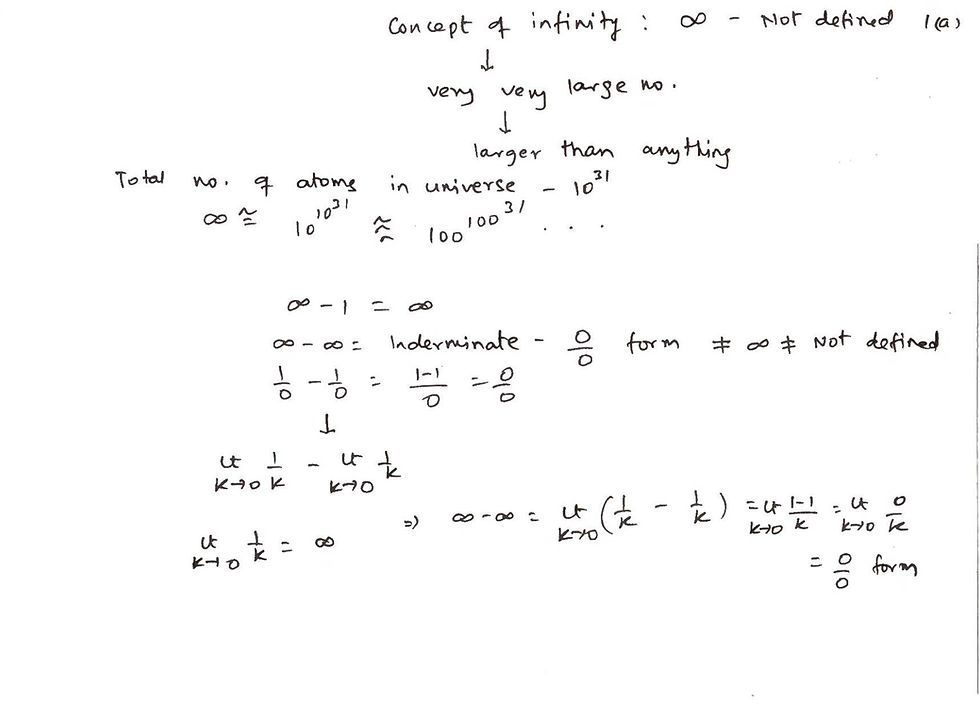 Concept of infinity : ∞ - Not defined 1(a)
↓
very very large no.
↓
larger than anything
Total no. of atoms in universe - 10^31
∞ ≅ 10^10^31 ≈ 100^100^31 . . .
∞ - 1 = ∞
∞ - ∞ = Inderminate - 0/0 form ≠ ∞ ≠ Not defined
1/0 - 1/0 = 1-1/0 = 0/0
↓
Lt K→0 1/K - Lt K→0 1/K
Lt K→0 1/K = ∞ ⇒ ∞ - ∞ = Lt K→0 (1/K - 1/K) = Lt K→0 1-1/K = Lt K→0 0/K
= 0/0 form